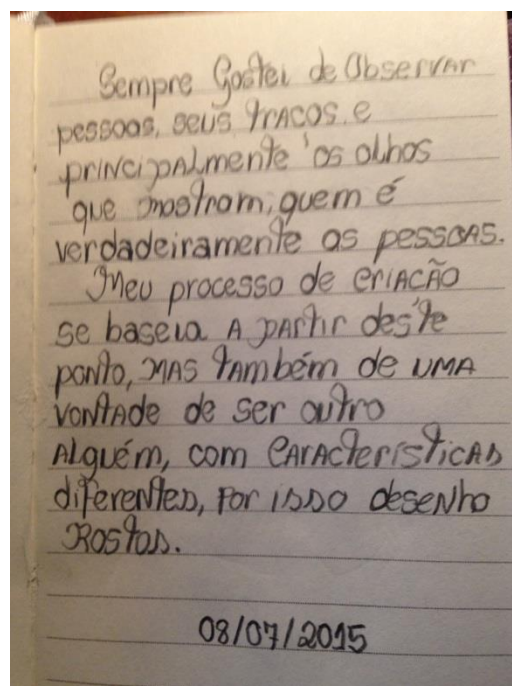 Sempre Gostei de Observar
pessoas, seus traços e
principalmente os olhos
que mostram, quem é
verdadeiramente as pessoas.
Meu processo de criação
se baseia a partir deste
ponto, mas também de uma
vontade de ser outro
alguém, com características
diferentes, por isso desenho
Rostos.
08/07/2015